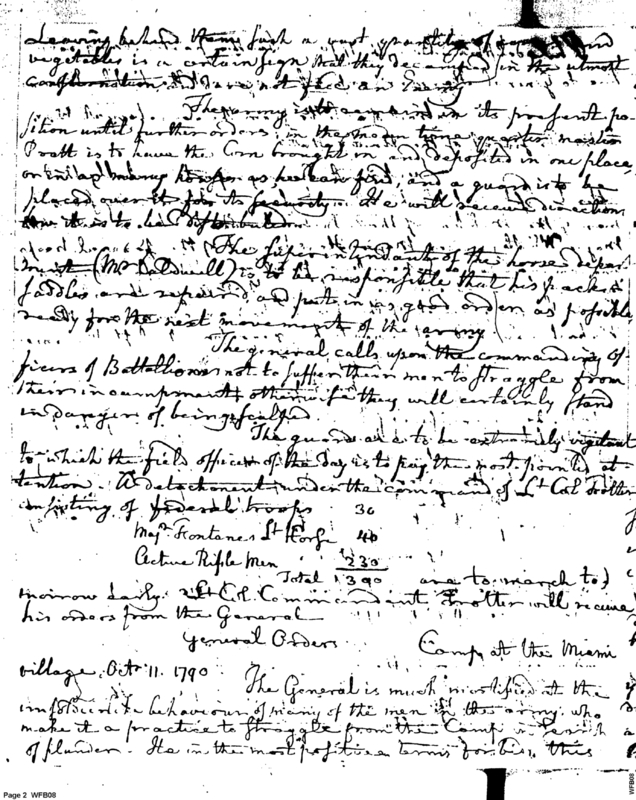 Leaving behind them such a vast quantity of and
vegetables is a certain sign that they decamped in the utmost
consternation and dare not face an Enemy
The army is to remain in its present po-
sition until further orders, in the mean time quarter master
Pratt is to have the Corn brought in and deposited in one place,
or in as many houses as he can find, and a guard is to be
placed over it for its security. He will receive directions
how it is to be distributed
The Superintendant of the horse depart
ment (Mr Caldwell) is to be responsible that his pack
saddles are repaired and put in as good order as possible
ready for the next movement of the army
The general calls upon the commanding of
ficers of Battallions not to suffer their men to straggle from
their incampment otherwise they will certainly stand
in danger of being scalped
The guards are to be extremely vigilant
to which the field officer of the day is to pay the most pointed at
tention. A detachment under the command of Lt Col Trotter
consisting of federal troops 30
Majr Fontanes Lt Horse 40
Active Rifle Men 230
Total 390 are to march to
morrow early. Lt Col. Commandant Trotter will receive
his orders from the General
General Orders Camp at the Miami
village, Octr 11. 1790
The General is much mortified at the
behaviour of many of the men in the army, who
make it a practice to straggle from the Camp in search
of plunder. He in the most positive terms forbids this
Page 2 WFB08
WFB08